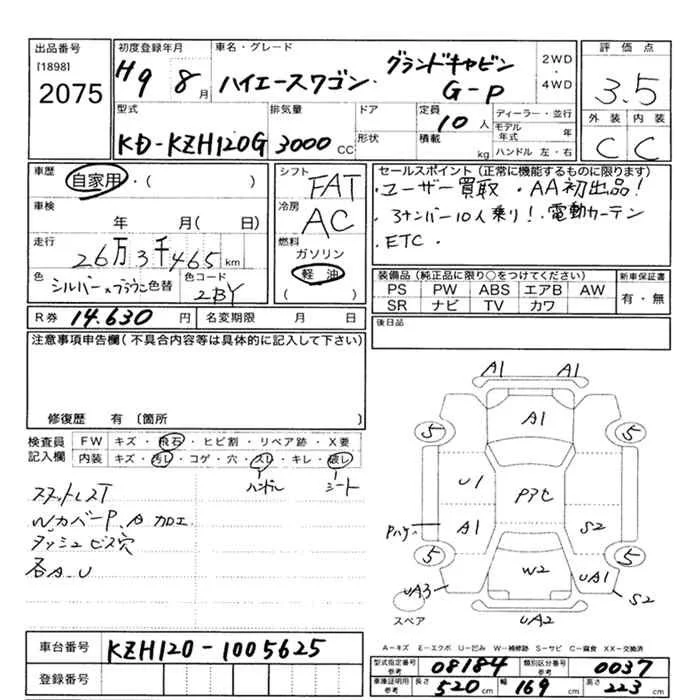 出品番号
[1898]
2075
初度登録年月
H9 8月
車名・グレード
ハイエースワゴン グランドキャビン G-P
2WD
・
4WD
評価点
3.5
外装 内装
C C
型式
KD-KZH120G
排気量
3000 CC
ドア
形状
定員
10人
積載
kg
ディーラー・並行
モデル年式 年
ハンドル 左・右
車歴
自家用・( )
車検
年 月( 日)
走行
26万3千465 km
色
シルバー×ブラウン
色替
色コード
2BY
シフト
FAT
冷房
AC
燃料
ガソリン
軽油
( )
セールスポイント(正常に機能するものに限ります)
・ユーザー買取・AA初出品!
・3ナンバー10人乗り!・電動カーテン
・ETC・
装備品(純正品に限り○をつけてください)
PS PW ABS エアB AW
SR ナビ TV カワ
新車保証書
有・無
R券 14.630 円
名変期限 月 日
後日品
注意事項申告欄(不具合内容等は具体的に記入して下さい)
修復歴 有 〔箇所 〕
検査員記入欄
FW キズ・飛石・ヒビ割・リペア跡・X要
内装 キズ・汚レ・コゲ・穴・スレ・キレ・破レ
ハンドル シート
スタットレスT
Wカバー P、A 加エ
ダッシュ ビス穴
各A、U
A1 A1
A1
5 5
U1
P3C
Pハゲ
A1
S2
5 5
W2
UA3
UA1
S2
スペア
UA2
A-キズ E-エクボ U-凹み W-補修跡 S-サビ C-腐食 XX-交換済
車台番号 KZH120-1005625
登録番号
型式指定番号 参考 08184
類別区分番号 参考 0037
車検証明用 参考 長さ 520 cm 幅 169 cm 高さ 223 cm